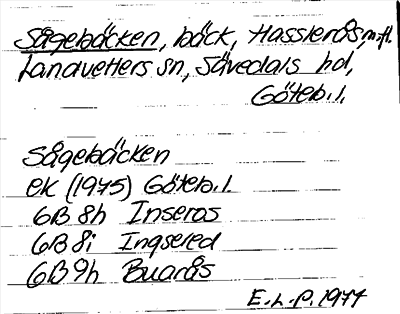 Sågebäcken, bäck, Hassleråsmfl.
Landvetters sn, Sävedals hd,
Göteb.l.
Sågebäcken
ek (1975) Göteb.l.
6B 8h Inseros
6B 8i Ingsered
6B 9h Buarås
E.L.P. 1977